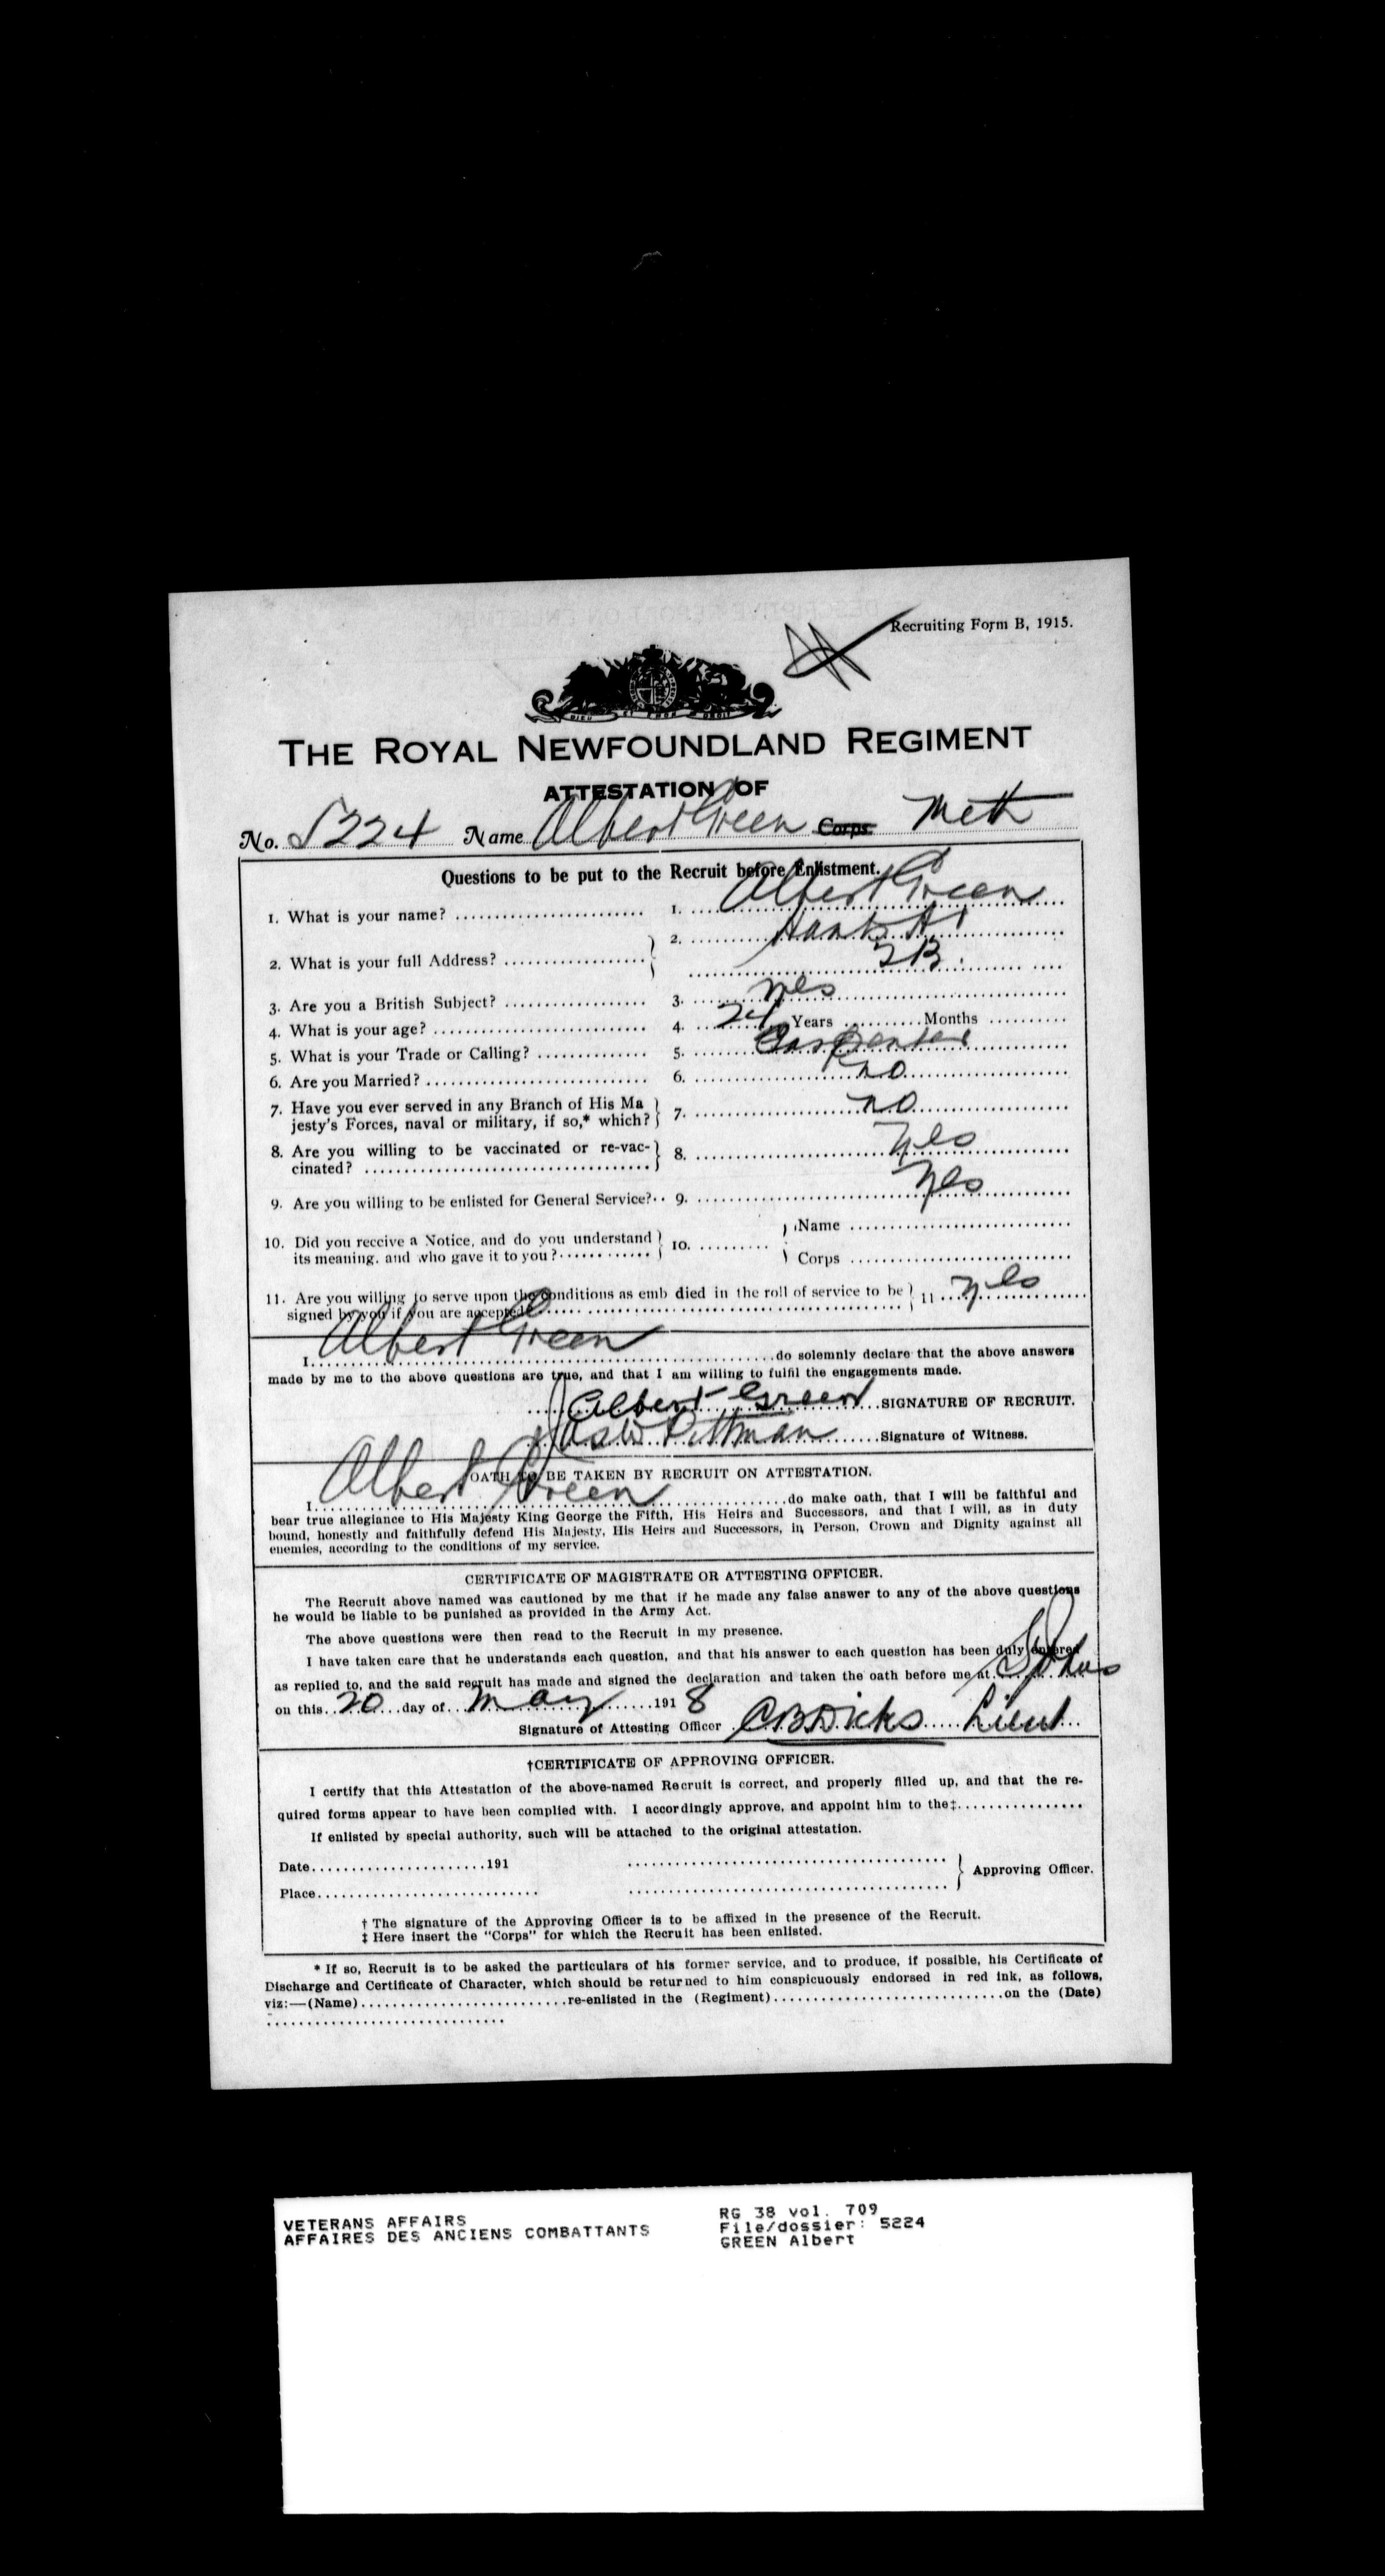 Recruiting Form B, 1915.
DIEU ET MON DROIT
THE ROYAL NEWFOUNDLAND REGIMENT
ATTESTATION OF
No. 5224 Name Albert Green Corps Meth
Questions to be put to the Recruit before Enlistment.
1. What is your name? 1. Albert Green
2. What is your full Address? 2. Hants Hr
T B.
3. Are you a British Subject? 3. Yes
4. What is your age? 4. 24 Years Months
5. What is your Trade or Calling? 5. Carpenter
6. Are you Married? 6. no
7. Have you ever served in any Branch of His Ma
jesty's Forces, naval or military, if so,* which? 7. no
8. Are you willing to be vaccinated or re-vac-
cinated? 8. Yes
9. Are you willing to be enlisted for General Service? 9. Yes
10. Did you receive a Notice, and do you understand
its meaning, and who gave it to you? 10. Name
Corps
11. Are you willing to serve upon the conditions as emb died in the roll of service to be
signed by you if you are accepted? 11 Yes
I Albert Green do solemnly declare that the above answers
made by me to the above questions are true, and that I am willing to fulfil the engagements made.
Albert Green SIGNATURE OF RECRUIT.
Jas W Pittman Signature of Witness.
OATH TO BE TAKEN BY RECRUIT ON ATTESTATION.
I Albert Green do make oath, that I will be faithful and
bear true allegiance to His Majesty King George the Fifth, His Heirs and Successors, and that I will, as in duty
bound, honestly and faithfully defend His Majesty, His Heirs and Successors, in Person, Crown and Dignity against all
enemies, according to the conditions of my service.
CERTIFICATE OF MAGISTRATE OR ATTESTING OFFICER.
The Recruit above named was cautioned by me that if he made any false answer to any of the above questions
he would be liable to be punished as provided in the Army Act.
The above questions were then read to the Recruit in my presence.
I have taken care that he understands each question, and that his answer to each question has been duly entered
as replied to, and the said recruit has made and signed the declaration and taken the oath before me at St Johns
on this 20 day of May 1918
Signature of Attesting Officer C B Dicks Lieut
†CERTIFICATE OF APPROVING OFFICER.
I certify that this Attestation of the above-named Recruit is correct, and properly filled up, and that the re-
quired forms appear to have been complied with. I accordingly approve, and appoint him to the‡
If enlisted by special authority, such will be attached to the original attestation.
Date 191
Approving Officer.
Place
† The signature of the Approving Officer is to be affixed in the presence of the Recruit.
‡ Here insert the "Corps" for which the Recruit has been enlisted.
* If so, Recruit is to be asked the particulars of his former service, and to produce, if possible, his Certificate of
Discharge and Certificate of Character, which should be returned to him conspicuously endorsed in red ink, as follows,
viz:—(Name) re-enlisted in the (Regiment) on the (Date)
VETERANS AFFAIRS
AFFAIRES DES ANCIENS COMBATTANTS
RG 38 vol. 709
File/dossier: 5224
GREEN Albert